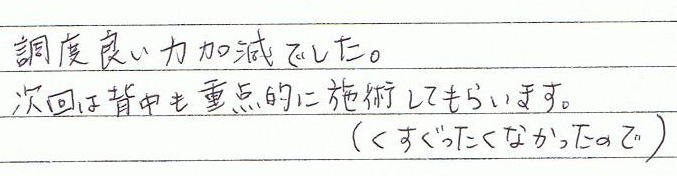 調度良い力加減でした。
次回は背中も重点的に施術してもらいます。
(くすぐったくなかったので)